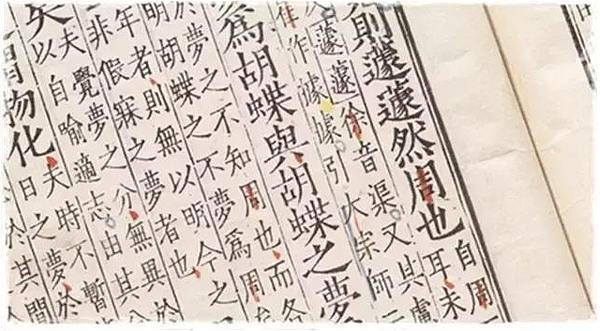 則蘧蘧然周也
自周
耳未
蘧蘧徐音渠又其慮
作據據引大宗師
爲胡蝶與胡蝶之夢
於夢之不知周也而各
明胡蝶之不夢爲周
年者則無以明今之
非假寐之夢者也
矣
夫覺夢之分無異於
以自喻適志由其
謂物化
夫時不暫
日之夢於
於其間